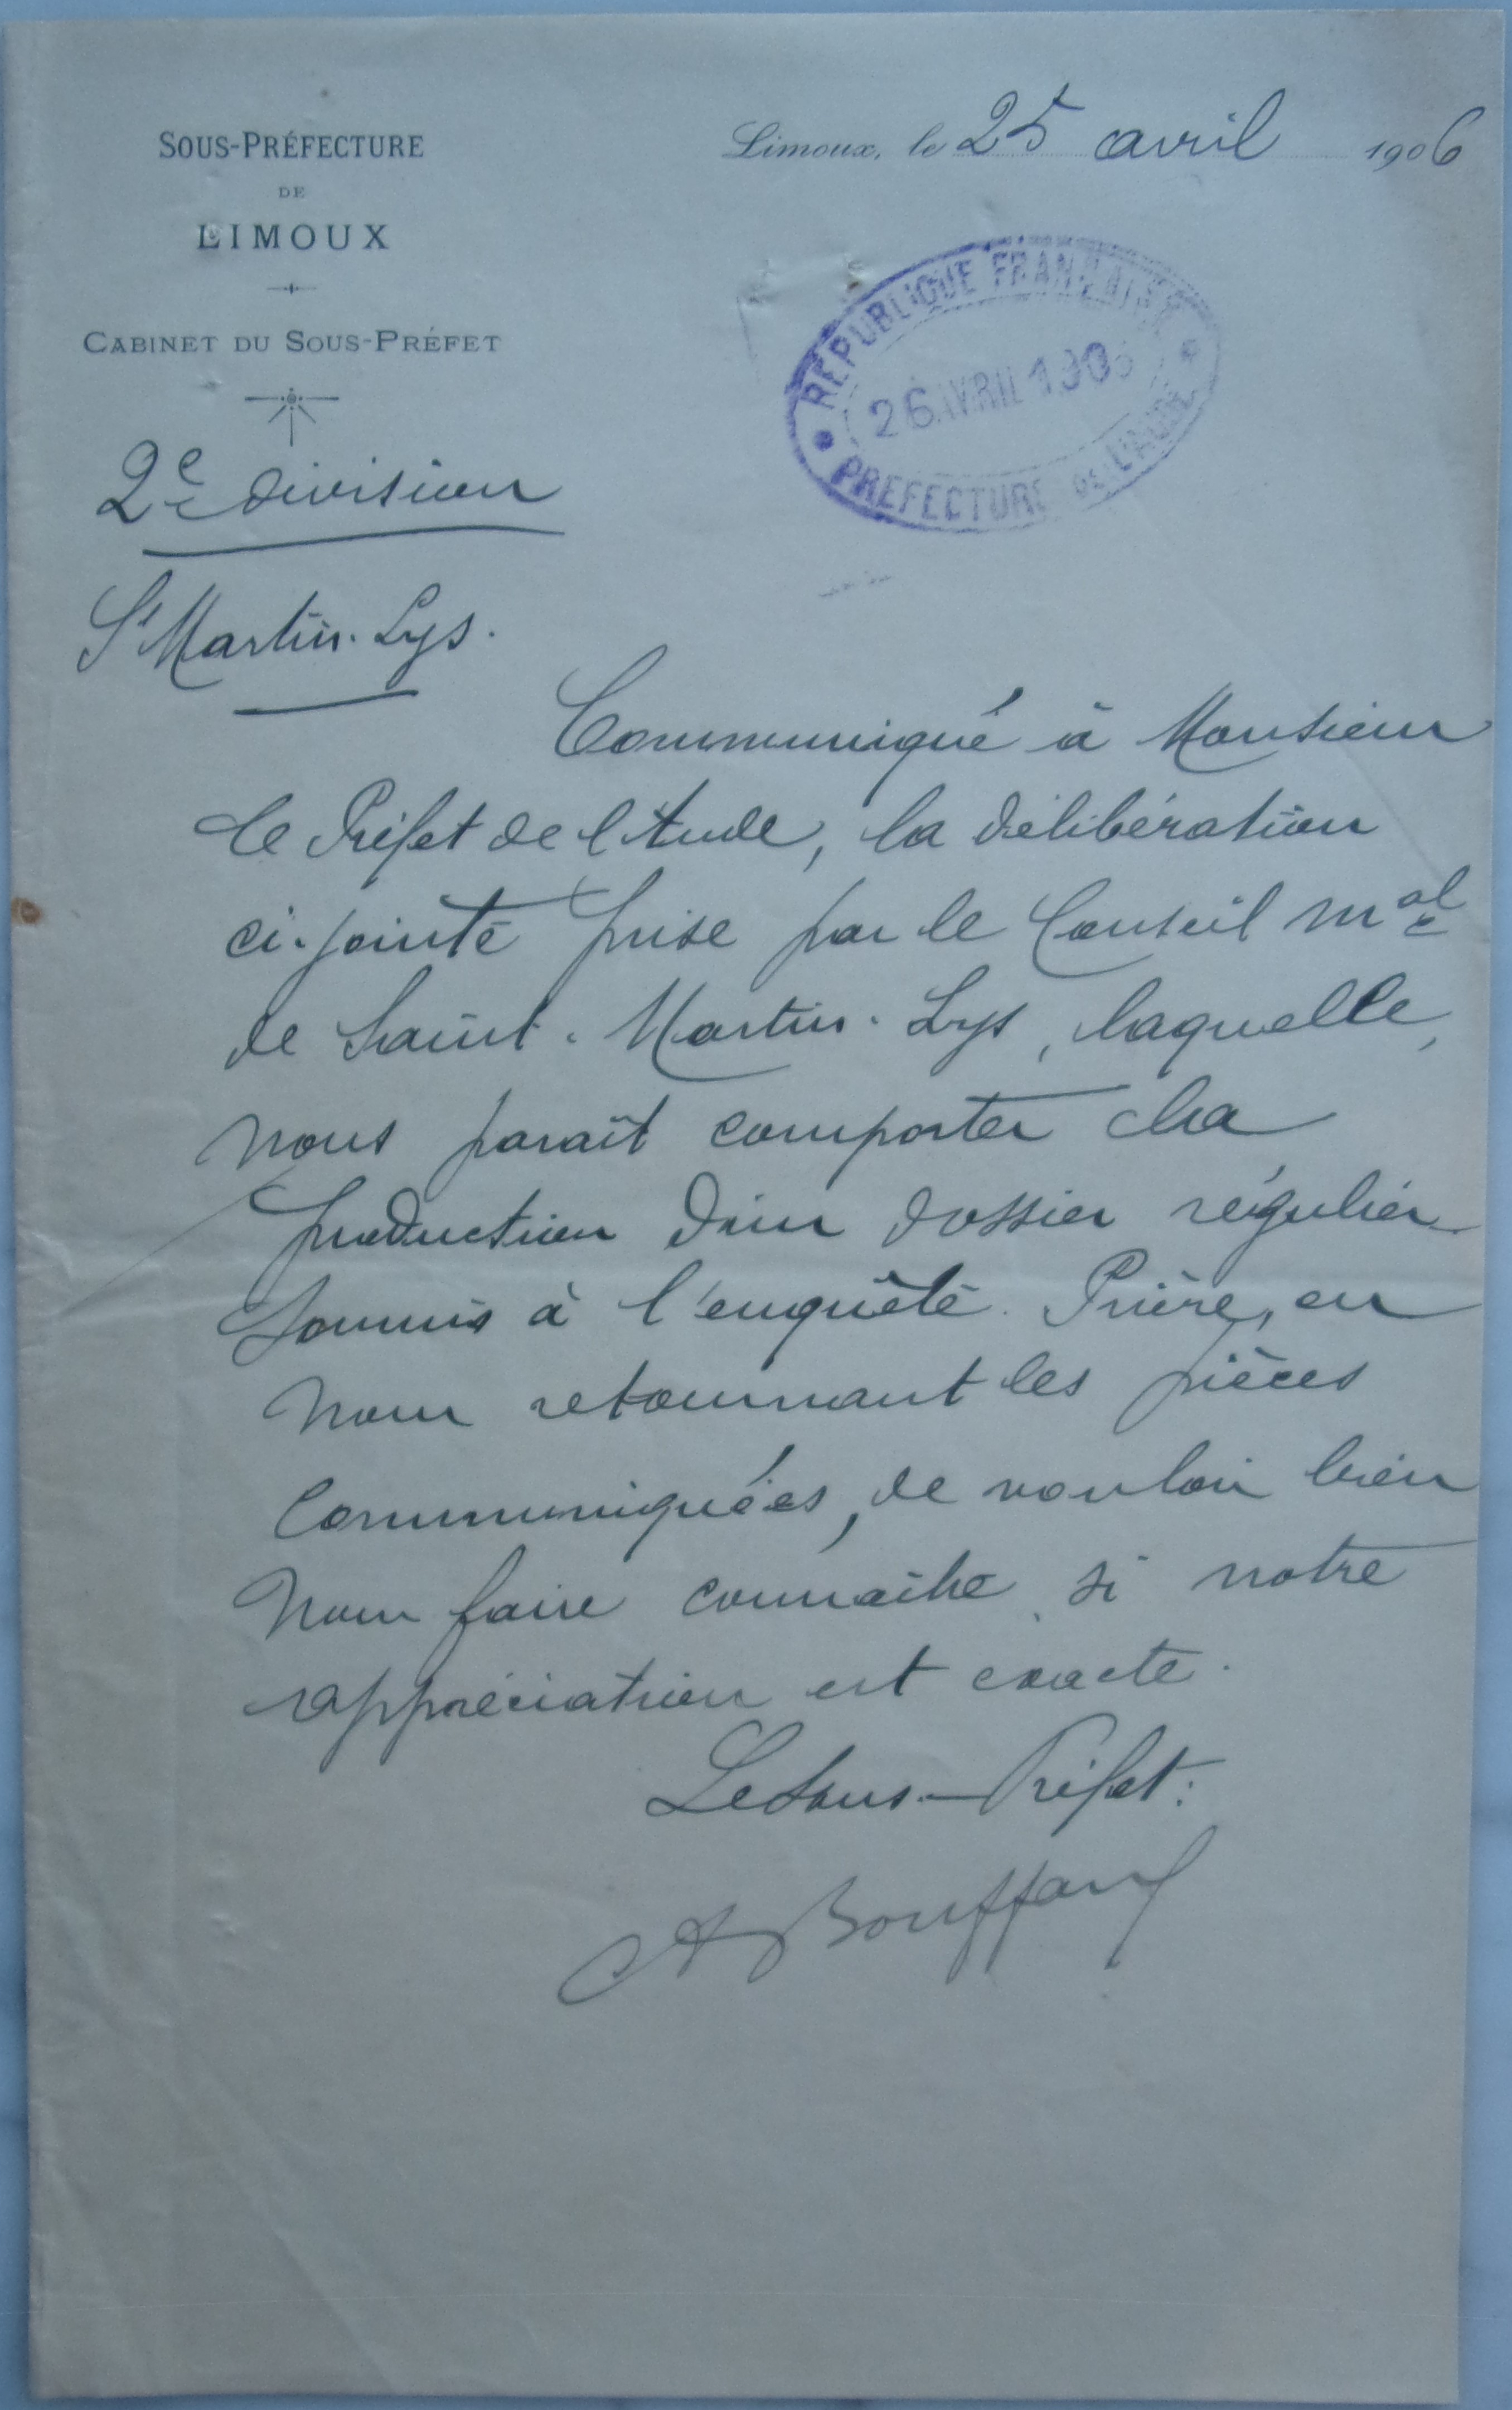 SOUS-PRÉFECTURE
DE
LIMOUX
CABINET DU SOUS-PRÉFET
Limoux, le 25 avril 1906
RÉPUBLIQUE FRANÇAISE
26 AVRIL 1906
PREFECTURE DE L'AUDE
2e division
St Martin-Lys.
Communiqué à Monsieur
le Préfet de l'Aude, la délibération
ci-jointe prise par le Conseil mal
de Saint-Martin-Lys, laquelle,
nous paraît comporter la
production d'un dossier régulier
soumis à l'enquête. Prière, en
nous retournant les pièces
communiquées, de vouloir bien
nous faire connaître si notre
appréciation est exacte.
Le Sous-Préfet:
A Bouffard